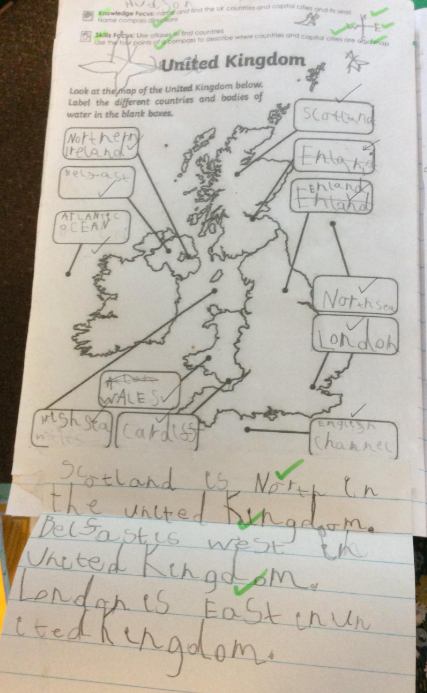 Hudson
Knowledge Focus: name and find the UK countries and capital cities and its seas
Name compass directions
Skills Focus: Use atlases to find countries
Use the four points of a compass to describe where countries and capital cities are on a map
United Kingdom
Look at the map of the United Kingdom below.
Label the different countries and bodies of
water in the blank boxes.
Scotland
Northern
Ireland
Belfast
ATLANTIC
OCEAN
North sea
London
WALES
Cardiff
English
channel
Scotland is North in
the united Kingdom.
Belfast is west in
United Kingdom.
London is East in Un
ited Kingdom.